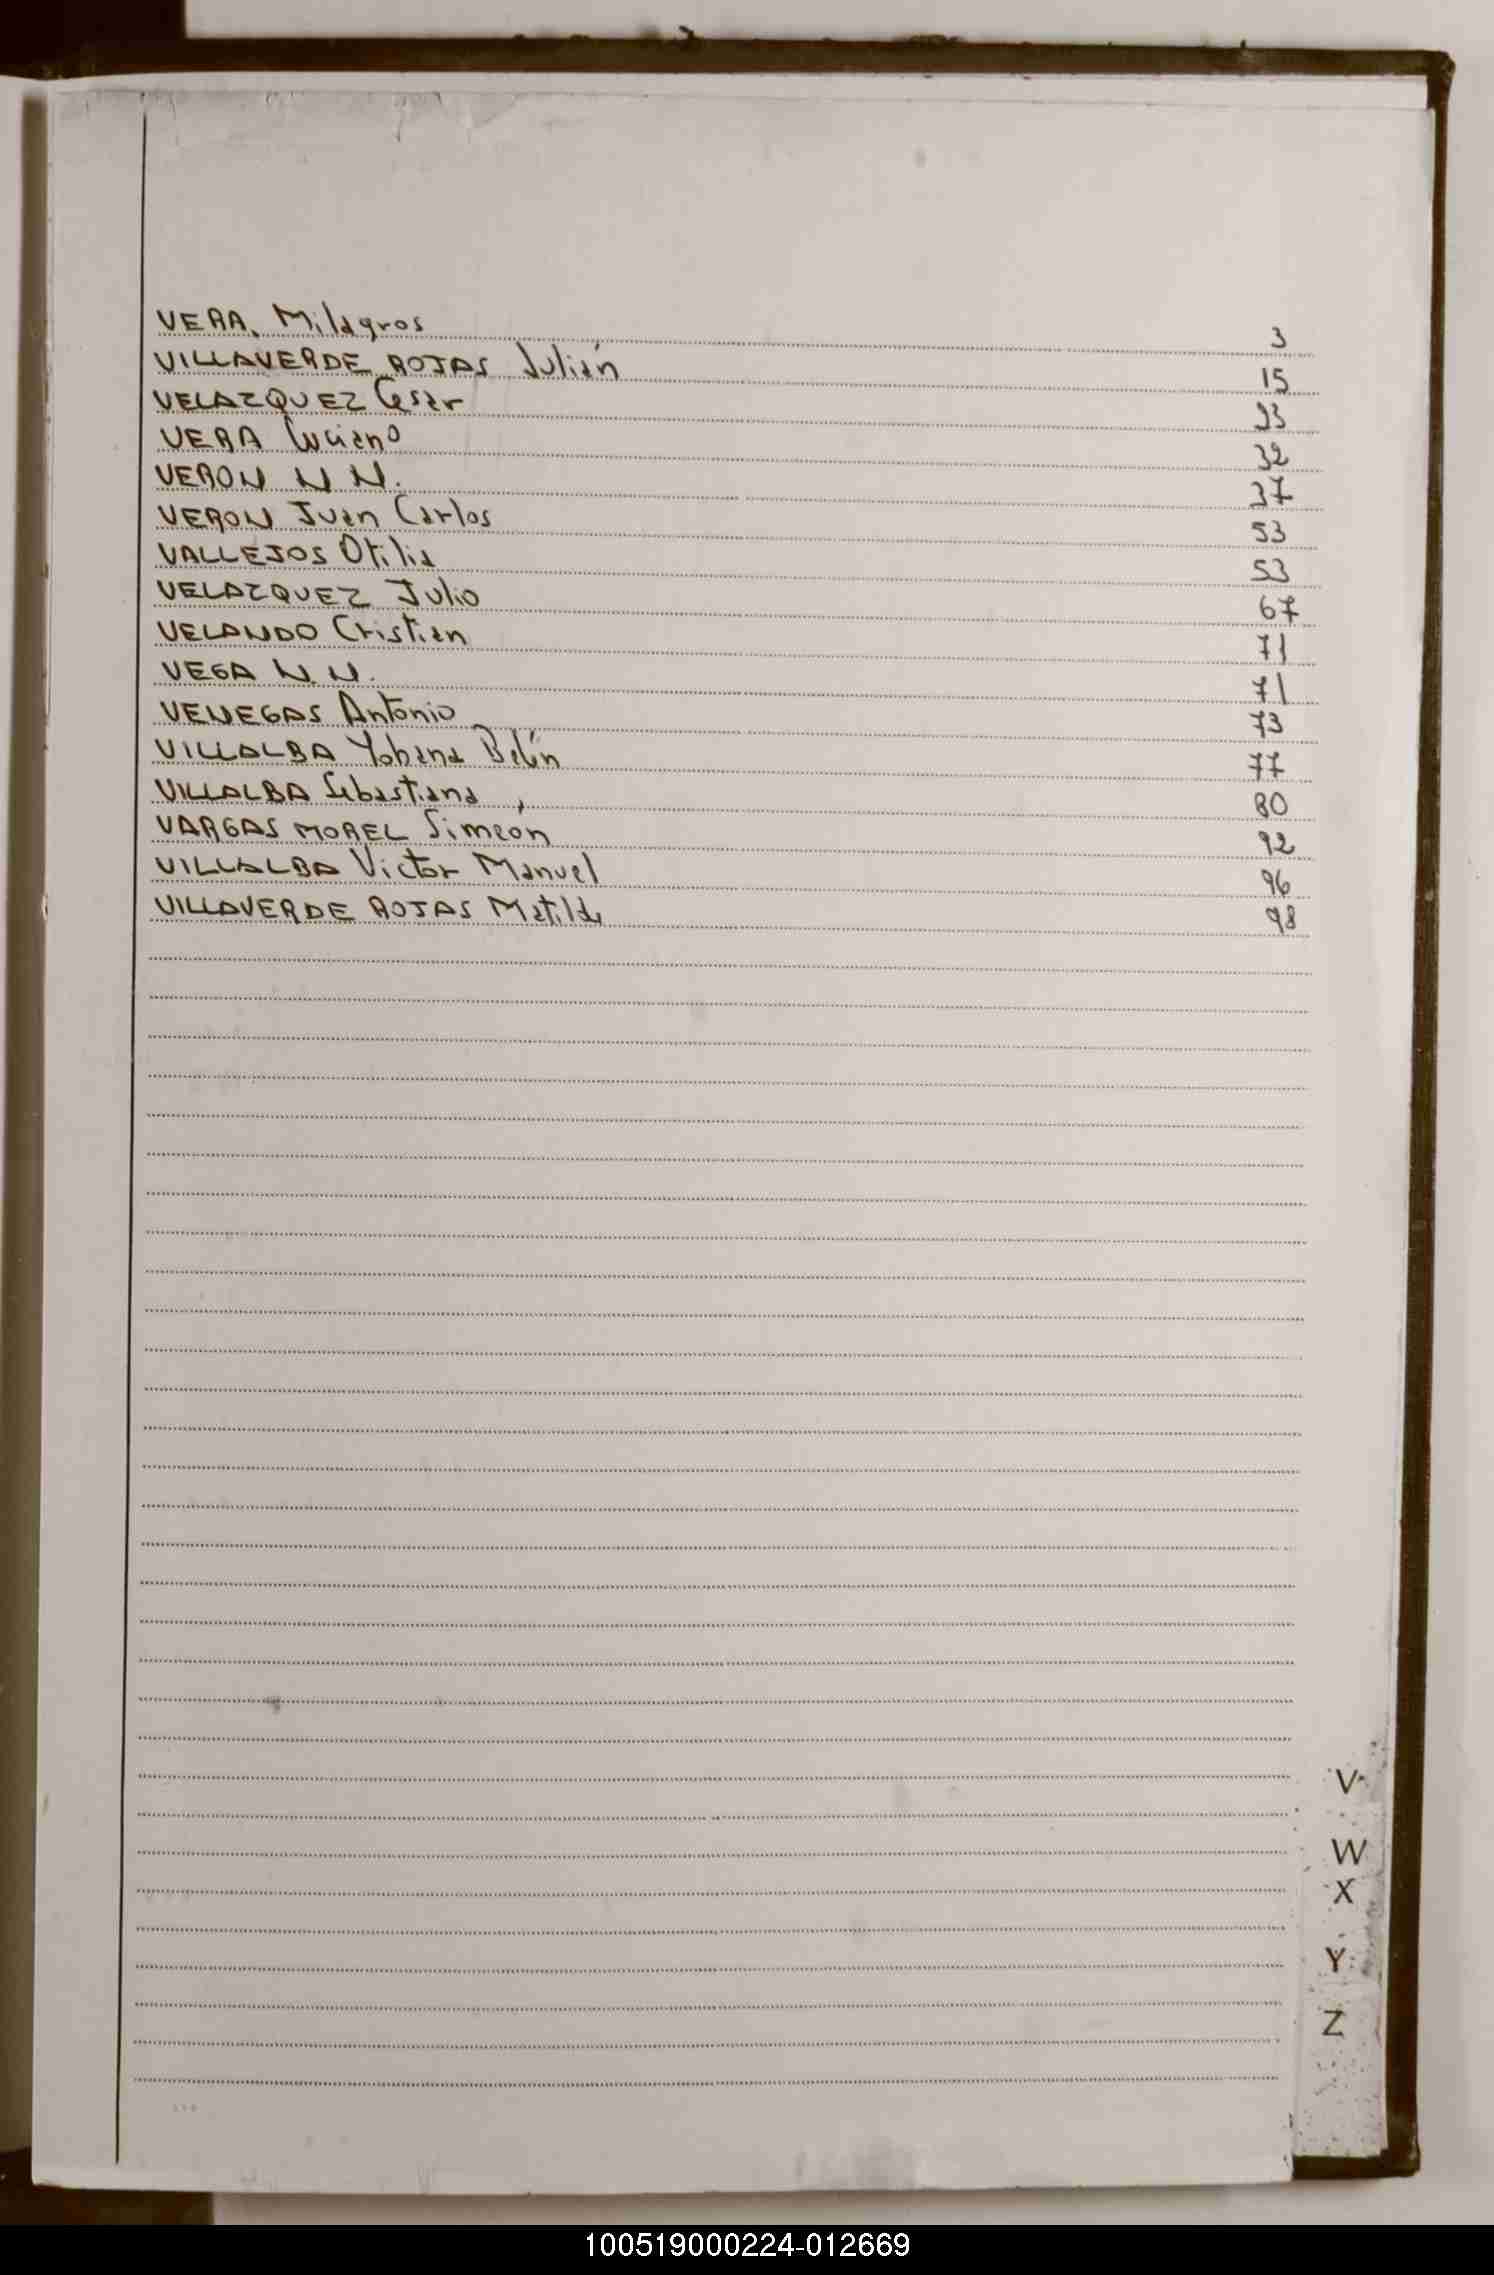 VERA, Milagros 3
VILLAVERDE ROJAS Julián 15
VELAZQUEZ Cesar 23
VERA Luciano 32
VERON N N. 37
VERON Juan Carlos 53
VALLEJOS Otilia 53
VELAZQUEZ Julio 67
VELANDO Cristian 71
VEGA N. N. 71
VENEGAS Antonio 73
VILLALBA Yohana Belén 77
VILLALBA Sebastiana 80
VARGAS MOREL Simeón 92
VILLALBA Victor Manuel 96
VILLAVERDE ROJAS Matilde 98
V
W
X
Y
Z
100519000224-012669